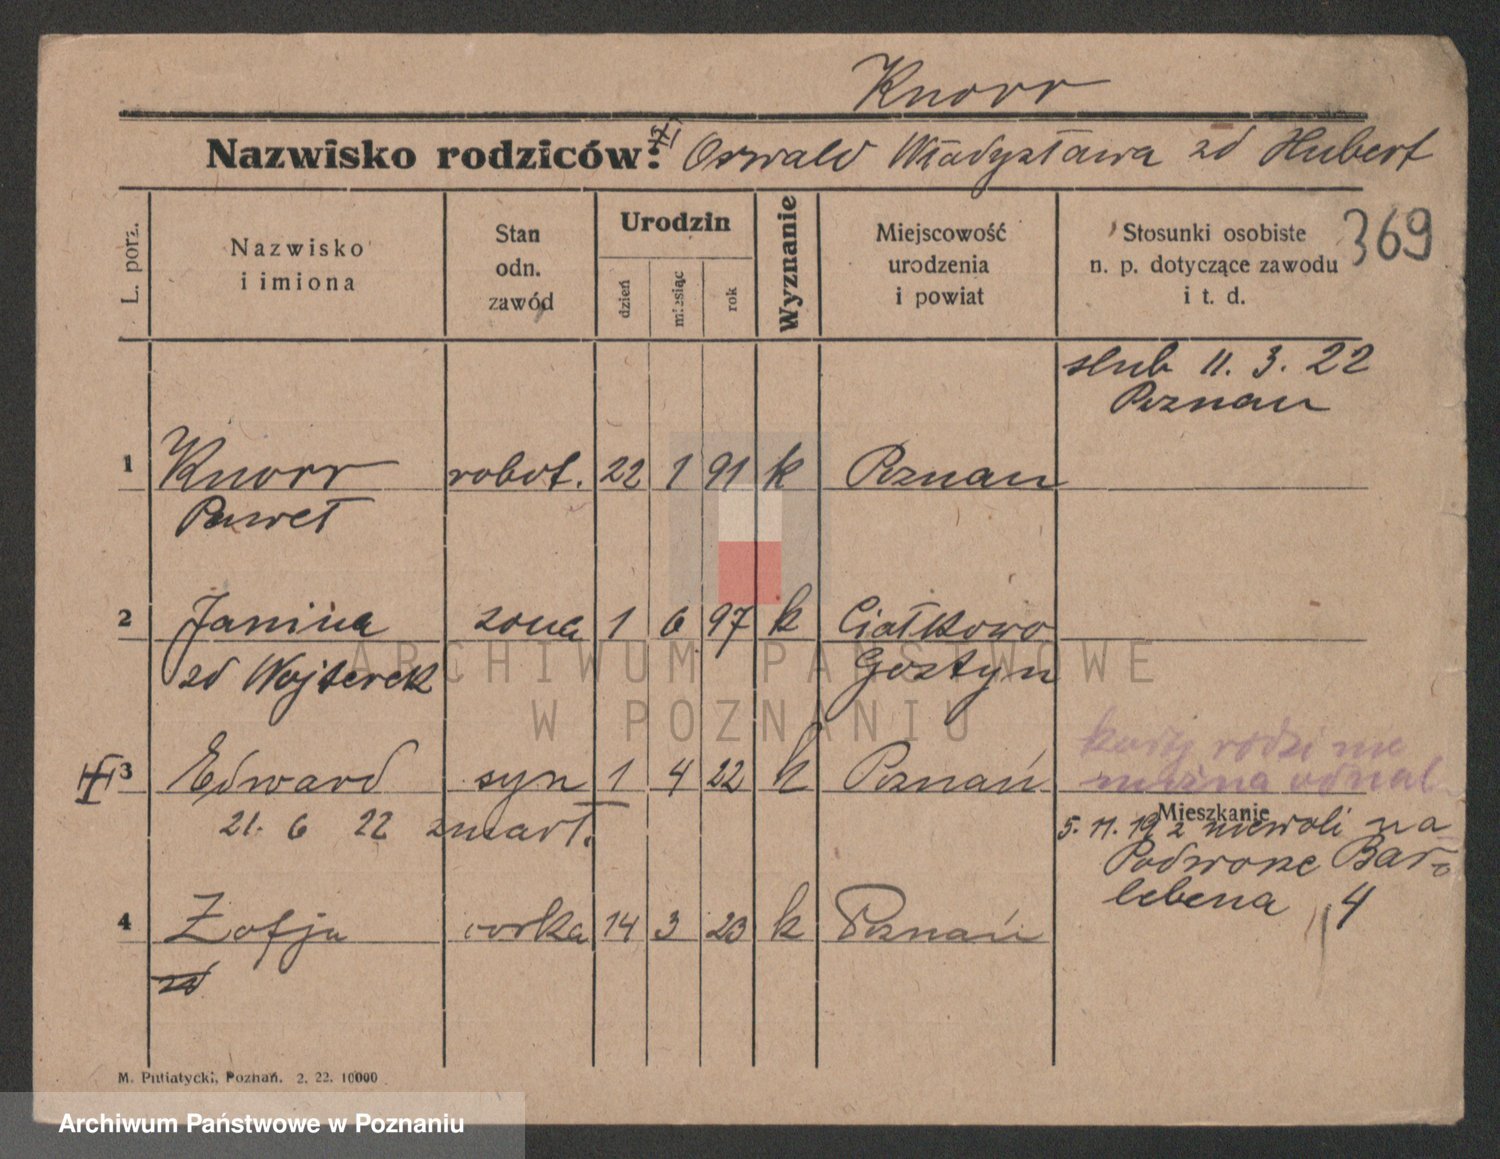 Knorr
Nazwisko rodziców: Oswald Władysława zd Hubert
L. porz.
Nazwisko i imiona
Stan odn. zawód
Urodzin
dzień
miesiąc
rok
Wyznanie
Miejscowość urodzenia i powiat
Stosunki osobiste n. p. dotyczące zawodu i t. d.
369
slub 11. 3. 22
Poznan
1 Knorr robot. 22 1 91 k Poznan
Paweł
2 Janina zona 1 6 97 k Ciołkowo
zd Wojterek Gostyn
ARCHIWUM PAŃSTWOWE
W POZNANIU
karty rodzi nie
można odnal
3 Edward syn 1 4 22 k Poznań
Mieszkanie
21. 6 22 zmart. 5. 11. 19 z niewoli na
Podworze Bar-
lebena 4
4 Zofja corka 14 3 23 k Poznań
zd
M. Putiatycki, Poznań. 2. 22. 10000
Archiwum Państwowe w Poznaniu